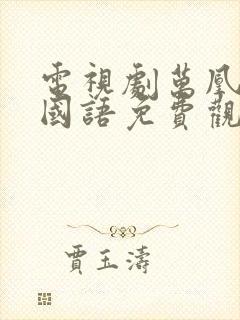 電視劇萬鳳
國語免費觀
賈玉濤